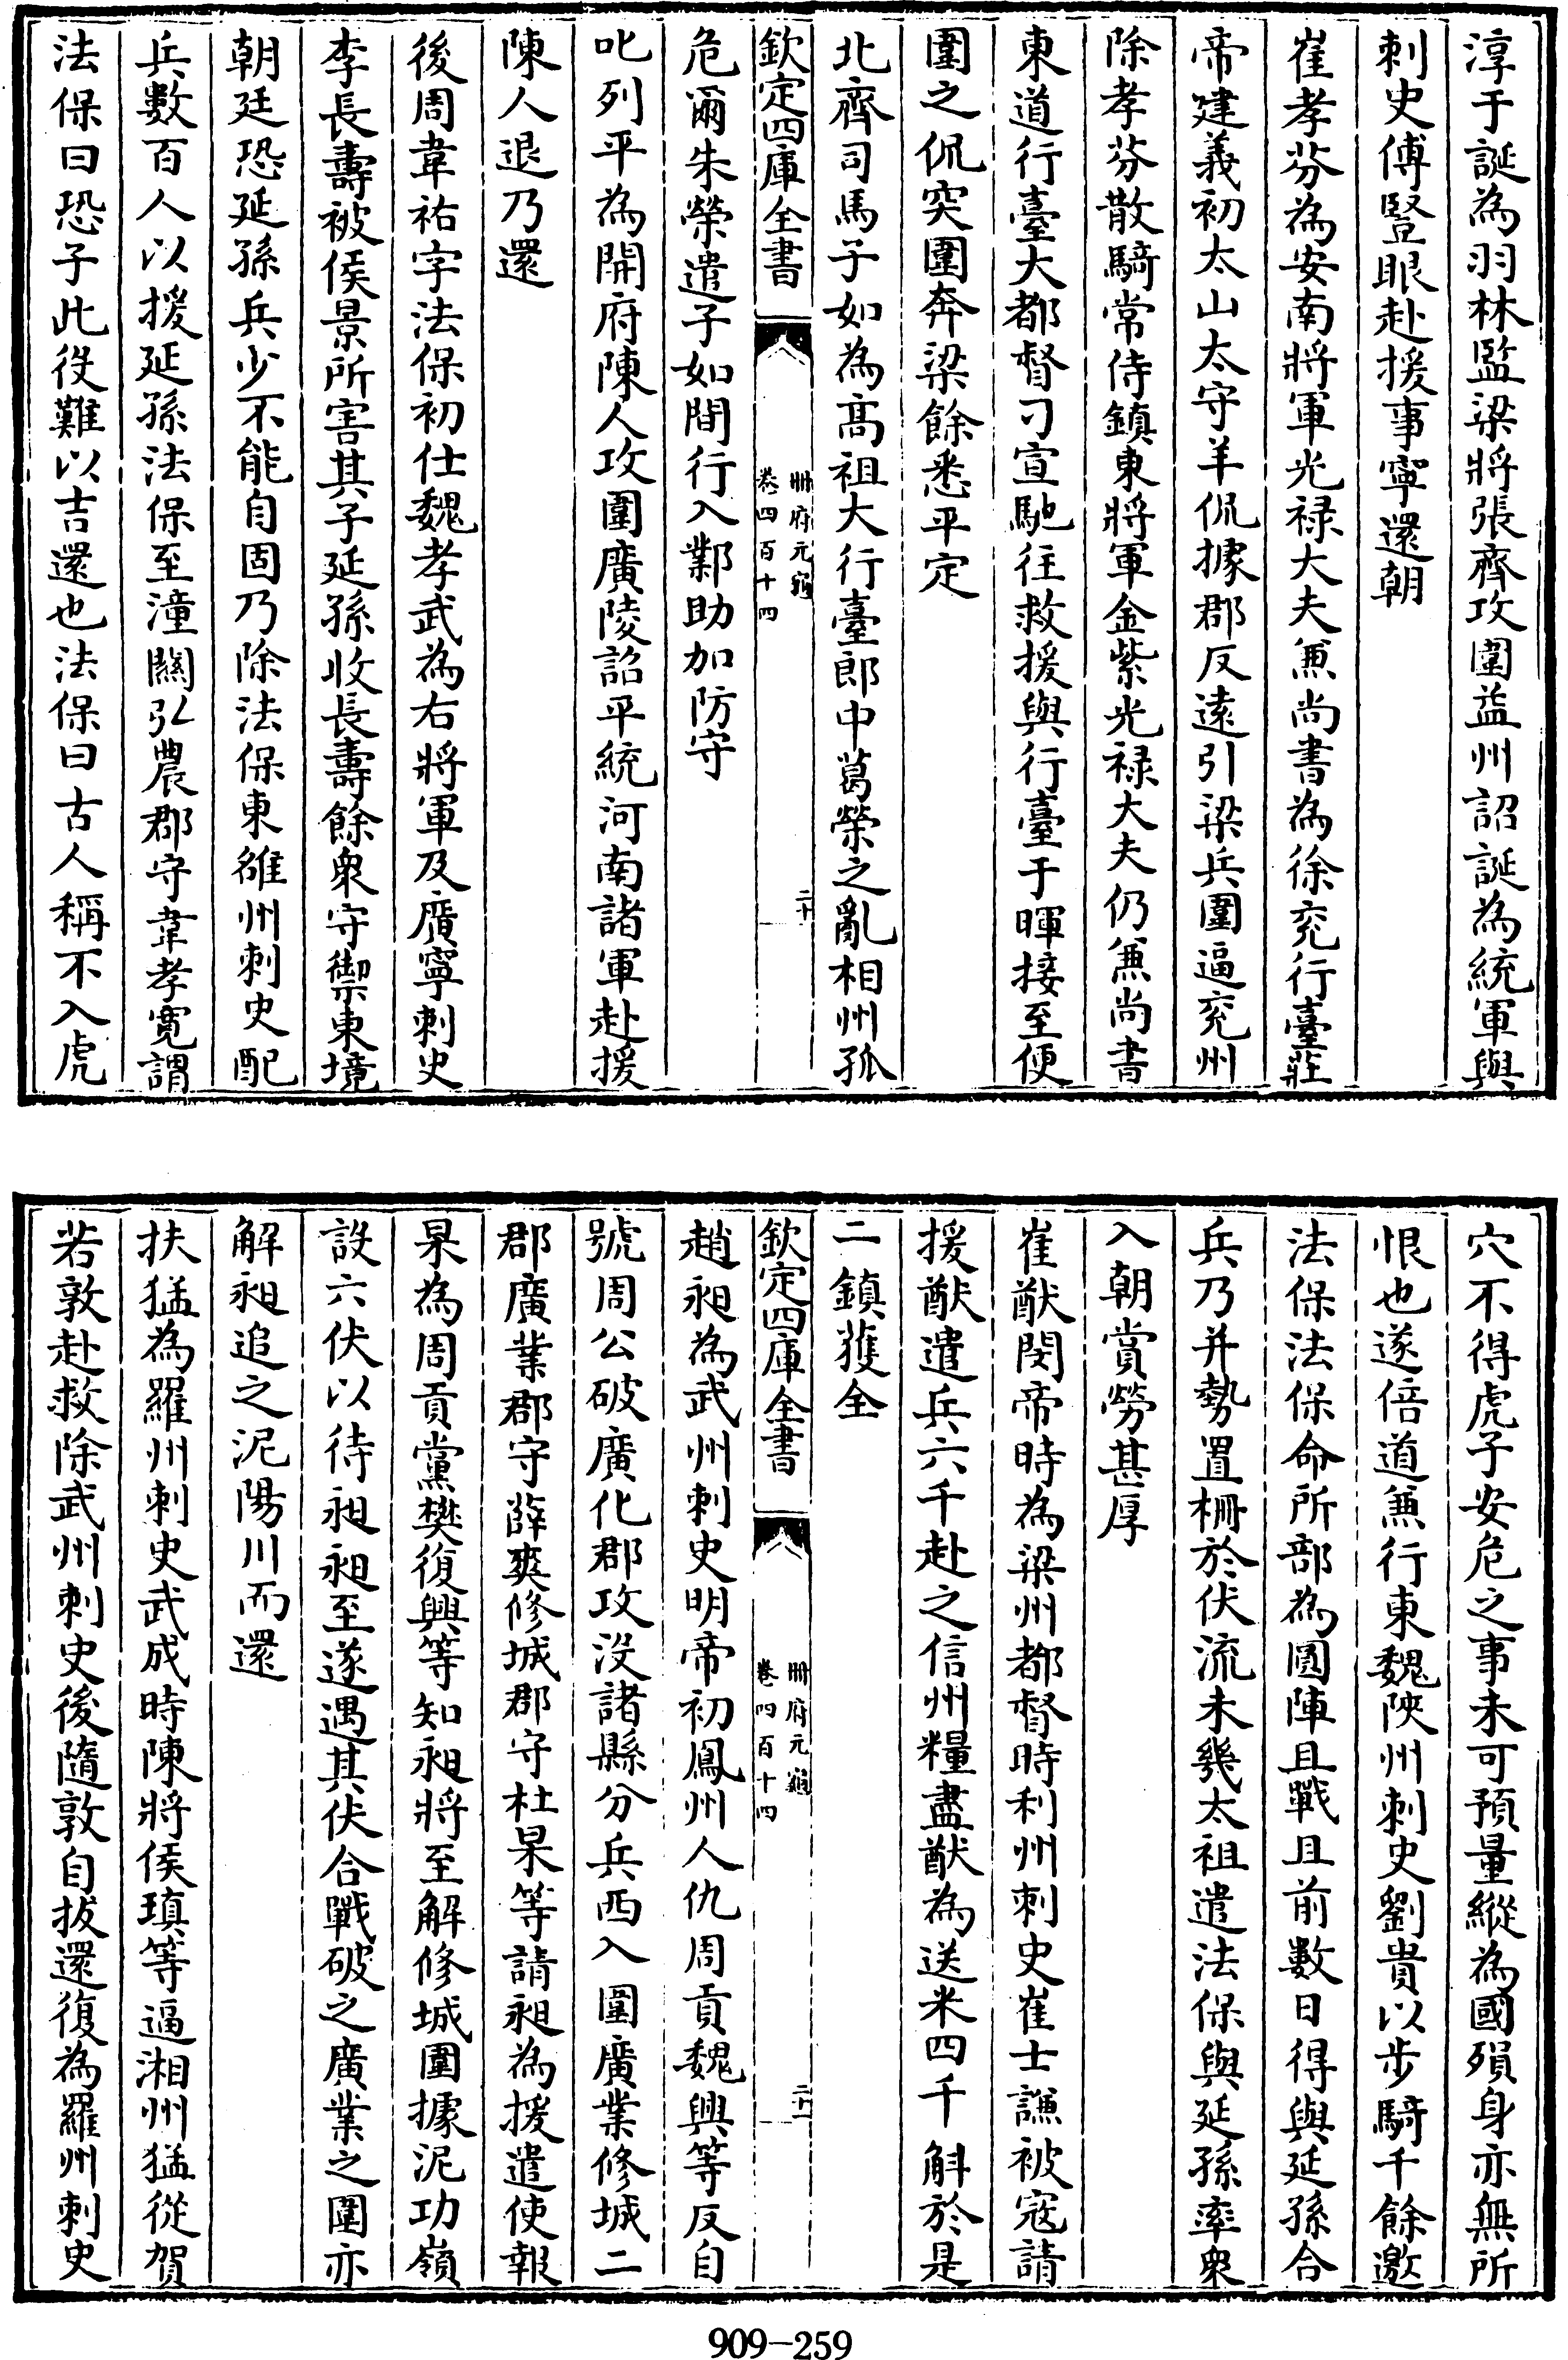 淳于誕為羽林監梁將張齊攻圍益州詔誕為統軍與
刺史傅豎眼赴援事寧還朝
崔孝芬為安南將軍光禄大夫兼尚書為徐兖行臺莊
帝建義初太山太守羊侃據郡反逺引梁兵圍逼兖州
除孝芬散騎常侍鎮東將軍金紫光禄大夫仍兼尚書
東道行臺大都督刁宣馳往救援與行臺于暉接至便
圍之侃突圍奔梁餘悉平定
北齊司馬子如為髙祖大行臺郎中葛榮之亂相州孤
欽定四庫全書
冊府元龜
卷四百十四
二十
危爾朱榮遣子如間行入鄴助加防守
叱列平為開府陳人攻圍廣陵詔平統河南諸軍赴援
陳人退乃還
後周韋祐字法保初仕魏孝武為右將軍及廣寧刺史
李長壽被侯景所害其子延孫收長壽餘衆守禦東境
朝廷恐延孫兵少不能自固乃除法保東雒州刺史配
兵數百人以援延孫法保至潼關弘農郡守韋孝寛謂
法保曰恐子此役難以吉還也法保曰古人稱不入虎
穴不得虎子安危之事未可預量縱為國殞身亦無所
恨也遂倍道兼行東魏陜州刺史劉貴以步騎千餘邀
法保法保命所部為圓陣且戰且前數日得與延孫合
兵乃并勢置栅於伏流未幾太祖遣法保與延孫率衆
入朝賞勞甚厚
崔猷閔帝時為梁州都督時利州刺史崔士謙被寇請
援猷遣兵六千赴之信州糧盡猷為送米四千斛於是
二鎮獲全
欽定四庫全書
冊府元龜
卷四百十四
二十一
趙昶為武州刺史明帝初鳳州人仇周貢魏興等反自
號周公破廣化郡攻没諸縣分兵西入圍廣業修城二
郡廣業郡守薛爽修城郡守杜杲等請昶為援遣使報
杲為周貢黨樊復興等知昶將至解修城圍據泥功嶺
設六伏以待昶昶至遂遇其伏合戰破之廣業之圍亦
解昶追之泥陽川而還
扶猛為羅州刺史武成時陳將侯瑱等逼湘州猛從賀
若敦赴救除武州刺史後隨敦自拔還復為羅州刺史
909-259